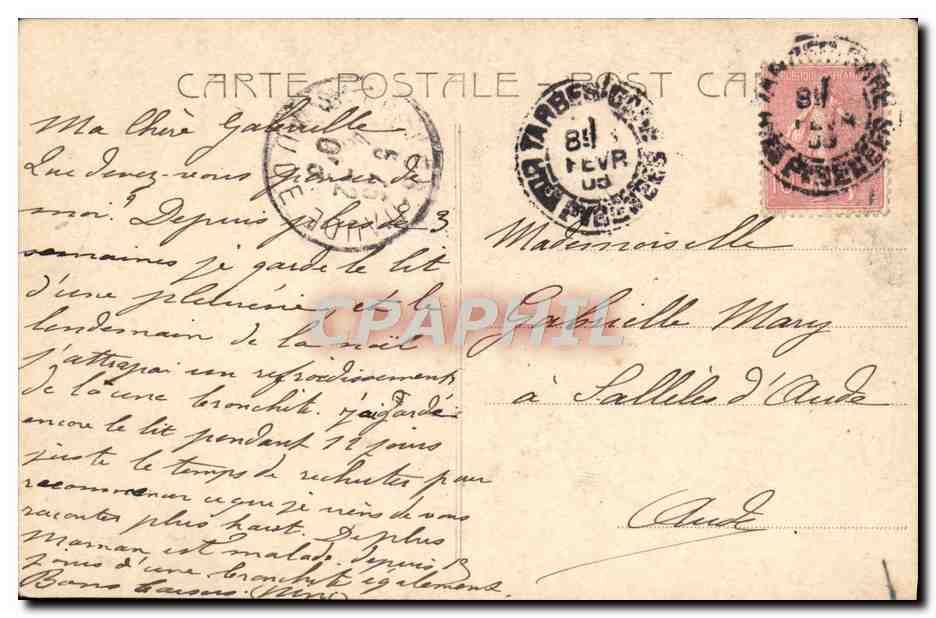 CARTE POSTALE - POST CA
Ma Chère Gabrielle
Que devez-vous penser de
moi? Depuis plus de 3
semaines je garde le lit
d'une pleurésie, et le
lendemain de la noël
j'attrapai un refroidissement
de là une bronchite. J'ai gardé
encore le lit pendant 12 jours
juste le temps de rechuter pour
recommencer ce que je viens de vous
raconter plus haut. De plus
Maman est malade depuis
jours d'une bronchite également
Bons baisers.
Mademoiselle
Gabrielle Mary
à Sallèles d'Aude
Aude
TARBES-GARE
8
FEVR
TARBES-GARE
8
FEVR
CPAPHIL